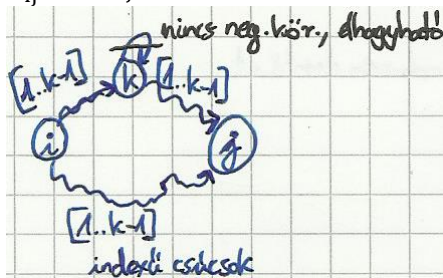 nincs neg. kör., elhagyható
[1..k-1] k [1..k-1]
i j
[1..k-1]
indexű csúcsok